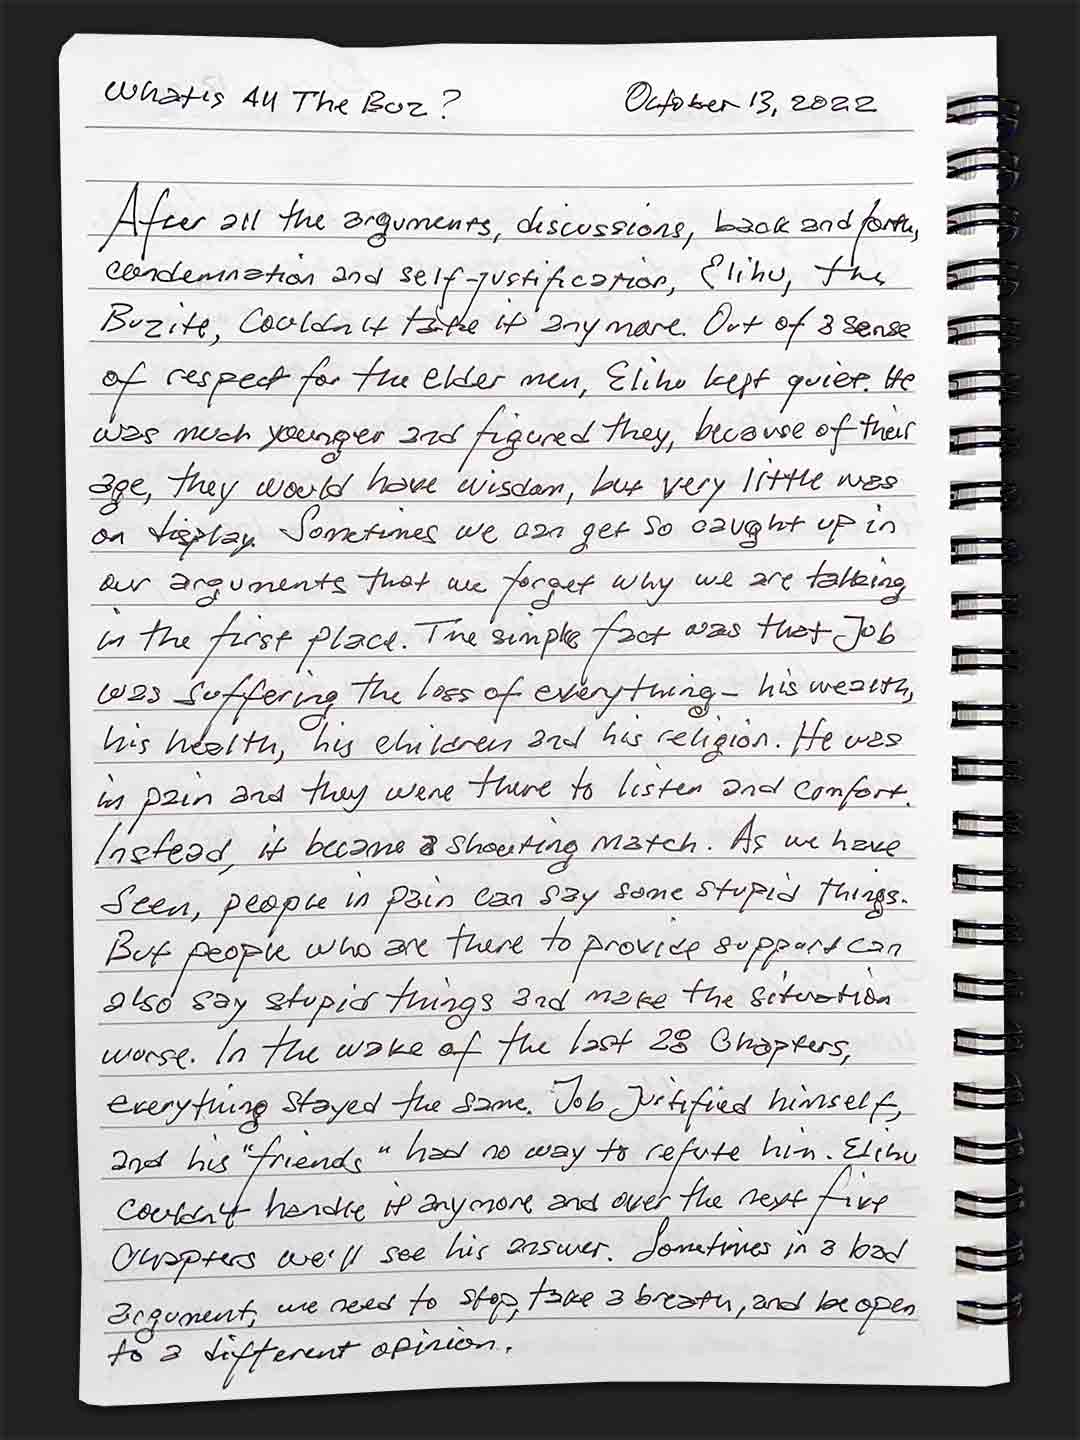 What is All The Buz? October 13, 2022
After all the arguments, discussions, back and forth,
condemnation and self-justification, Elihu, the
Buzite, couldn't take it anymore. Out of a sense
of respect for the elder men, Elihu kept quiet. He
was much younger and figured they, because of their
age, they would have wisdom, but very little was
on display. Sometimes we can get so caught up in
our arguments that we forget why we are talking
in the first place. The simple fact was that Job
was suffering the loss of everything - his wealth,
his health, his children and his religion. He was
in pain and they were there to listen and comfort.
Instead, it became a shouting match. As we have
seen, people in pain can say some stupid things.
But people who are there to provide support can
also say stupid things and make the situation
worse. In the wake of the last 28 Chapters,
everything stayed the same. Job justified himself,
and his "friends" had no way to refute him. Elihu
couldn't handle it anymore and over the next five
Chapters we'll see his answer. Sometimes in a bad
argument, we need to stop, take a breath, and be open
to a different opinion.